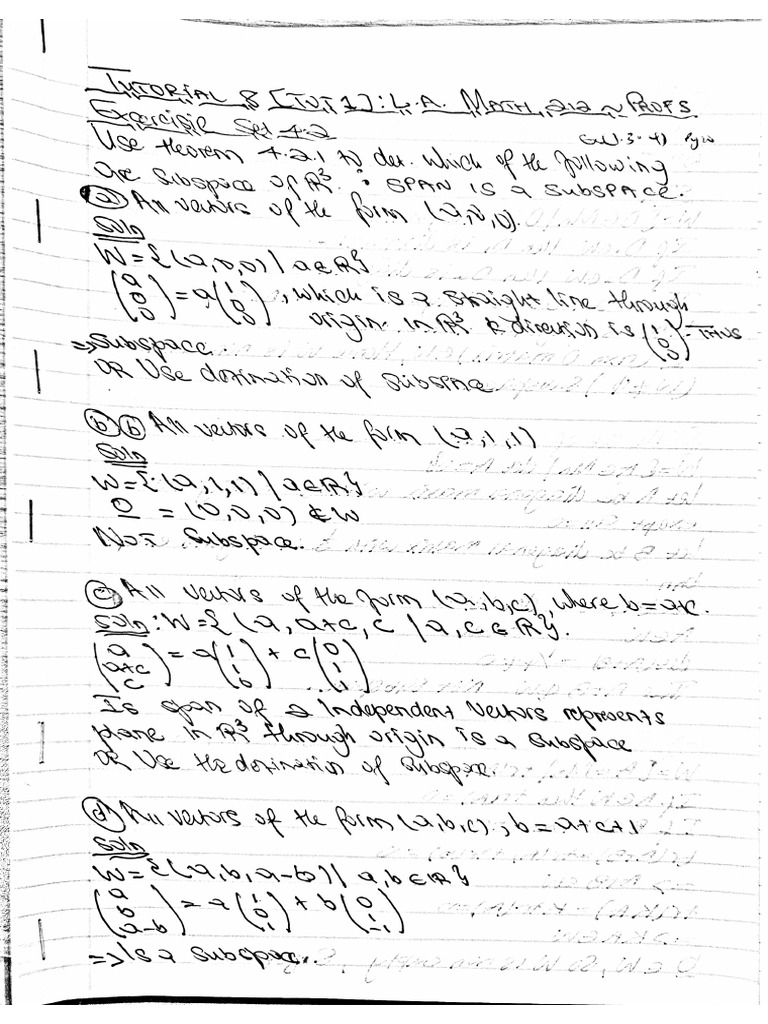 TUTORIAL 8 [TUT 1]: L.A. MATH 212 ~ PROFS.
Exercisie Set 4.2
Use theorem 4.2.1 to det. which of the following
are subspace of ℝ³. : SPAN IS A SUBSPACE.
(a) All vectors of the form (a,0,0).
Soln
W = {(a,0,0) | a∈ℝ}
(a 0 0) = a(1 0 0), which is a straight line through
origin in ℝ³ & direction is (1 0 0) - THUS
=> Subspace.
OR Use defination of subspace
(b) (b) All vectors of the form (a,1,1)
Soln
W = {(a,1,1) | a∈ℝ}
0 = (0,0,0) ∉ W
NOT Subspace.
(c) All vectors of the form (a,b,c), where b=a+c.
Soln: W = { (a, a+c, c | a, c ∈ ℝ}.
(a a+c c) = a(1 1 0) + c(0 1 1)
Is span of 2 Independent vectors represents
plane in ℝ³ through origin is a subspace
OR Use the defination of subspace
(d) All vectors of the form (a,b,c), b=a+c+1
Soln
W = {(a,b,a-b) | a,b ∈ ℝ}
(a b a-b) = a(1 0 1) + b(0 1 -1)
=> Is a subspace.